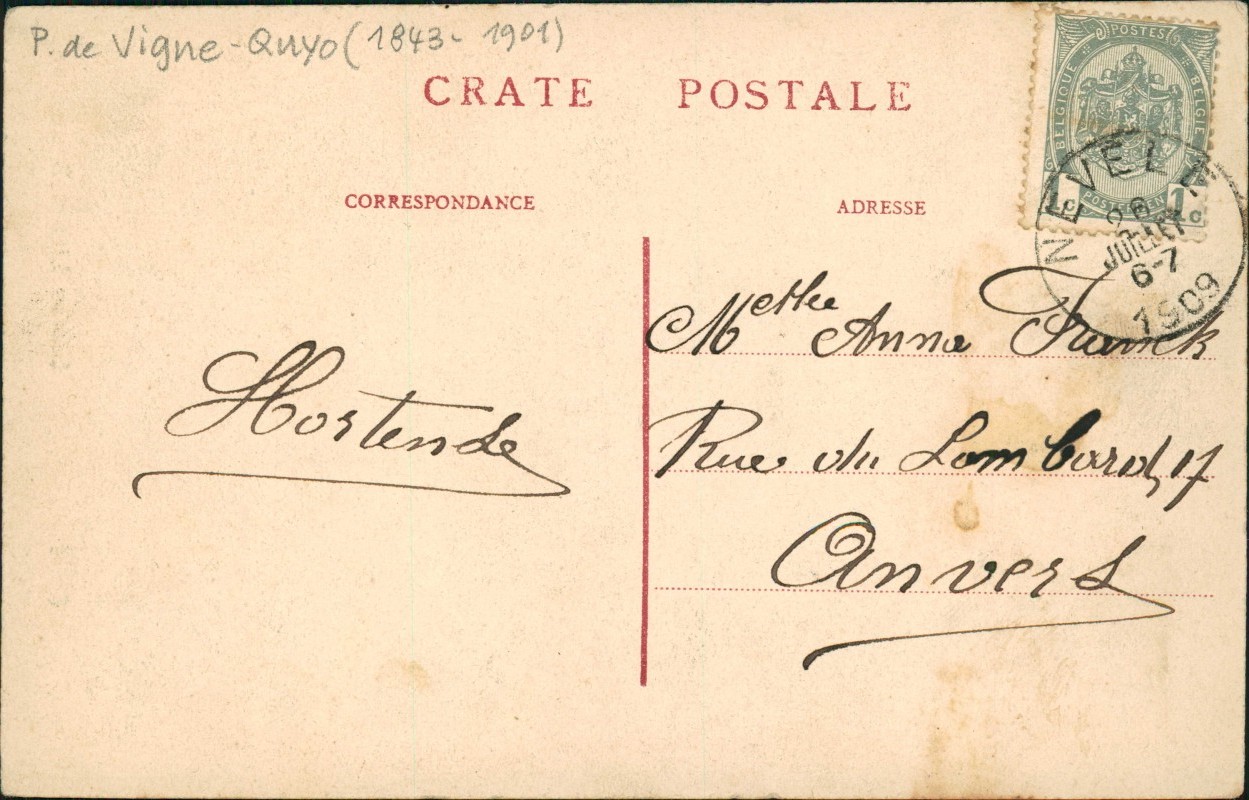 P. de Vigne-Quyo (1843- 1901)
CRATE POSTALE
POSTES
BELGIQUE BELGIE
1c 1c
POSTERIJEN
NEVELE
26
JUILLET
6-7
1909
CORRESPONDANCE
ADRESSE
Hostende
Melle Anna Franck
Rue du Lombard, 17
Anvers